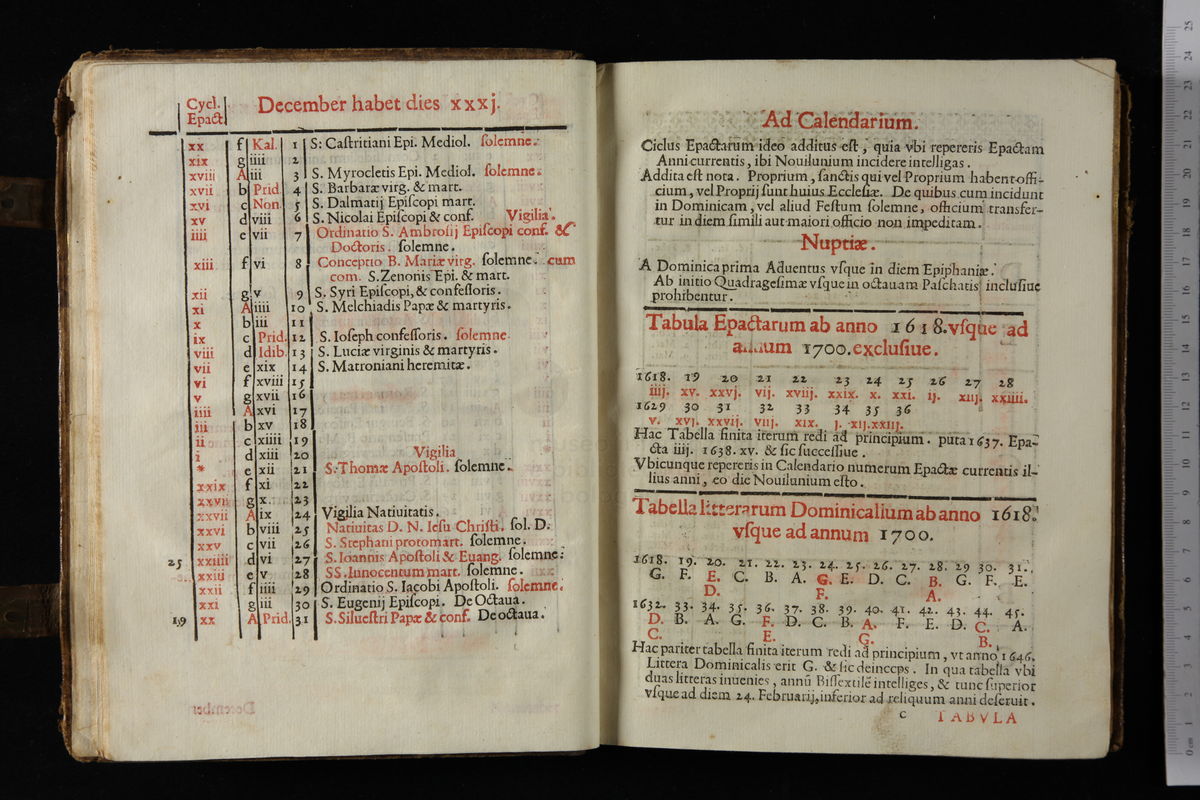 Cycl. Epact
December habet dies xxxj.
xx f Kal. 1 S. Caſtritiani Epi. Mediol. ſolemne.
xix g iiii 2
xviii A iii 3 S. Myrocletis Epi. Mediol. ſolemne.
xvii b Prid. 4 S. Barbaræ virg. & mart.
xvi c Non. 5 S. Dalmatij Epiſcopi mart.
xv d viii 6 S. Nicolai Epiſcopi & conf. Vigilia.
iiii e vii 7 Ordinatio S. Ambroſij Epiſcopi conf. &
Doctoris. ſolemne.
xiii f vi 8 Conceptio B. Mariæ virg. ſolemne. cum
com. S. Zenonis Epi. & mart.
xii g v 9 S. Syri Epiſcopi, & confeſſoris.
xi A iiii 10 S. Melchiadis Papæ & martyris.
x b iii 11
ix c Prid. 12 S. Ioſeph confeſſoris. ſolemne.
viii d Idib. 13 S. Luciæ virginis & martyris.
vii e xix 14 S. Matroniani heremitæ.
vi f xviii 15
v g xvii 16
iiii A xvi 17
iii b xv 18
ii c xiiii 19
i d xiii 20 Vigilia
* e xii 21 S. Thomæ Apoſtoli. ſolemne.
xxix f xi 22
xxviii g x. 23
xxvii A ix 24 Vigilia Natiuitatis.
xxvi b viii 25 Natiuitas D. N. Ieſu Chriſti. ſol. D.
xxv c vii 26 S. Stephani protomart. ſolemne.
25 xxiiii d vi 27 S. Ioannis Apoſtoli & Euang. ſolemne.
xxiii e v 28 SS. Innocentum mart. ſolemne.
xxii f iiii 29 Ordinatio S. Iacobi Apoſtoli. ſolemne.
xxi g iii 30 S. Eugenij Epiſcopi. De Octaua.
19 xx A Prid. 31 S. Silueſtri Papæ & conf. De octaua.
Ad Calendarium.
Ciclus Epactarum ideo additus eſt, quia vbi repereris Epactam
Anni currentis, ibi Nouilunium incidere intelligas.
Addita eſt nota. Proprium, ſanctis qui vel Proprium habent offi-
cium, vel Proprij ſunt huius Eccleſiæ. De quibus cum incidunt
in Dominicam, vel aliud Feſtum ſolemne, officium transfer-
tur in diem ſimili aut maiori officio non impeditam.
Nuptiæ.
A Dominica prima Aduentus vſque in diem Epiphaniæ.
Ab initio Quadrageſimæ vſque in octauam Paſchatis incluſiue
prohibentur.
Tabula Epactarum ab anno 1618. vſque ad
annum 1700. excluſiue.
1618. 19 20 21 22 23 24 25 26 27 28
iiij. xv. xxvj. vij. xviij. xxix. x. xxi. ij. xiij. xxiiii.
1629 30 31 32 33 34 35 36
v. xvj. xxvij. viij. xix. j. xij. xxiij.
Hac Tabella finita iterum redi ad principium. puta 1637. Epa-
cta iiij. 1638. xv. & ſic ſucceſſiue.
Vbicunque repereris in Calendario numerum Epactæ currentis il-
lius anni, eo die Nouilunium eſto.
Tabella litterarum Dominicalium ab anno 1618.
vſque ad annum 1700.
1618. 19. 20. 21. 22. 23. 24. 25. 26. 27. 28. 29. 30. 31.
G. F. E. C. B. A. G. E. D. C. B. G. F. E.
D. F. A.
1632. 33. 34. 35. 36. 37. 38. 39. 40. 41. 42. 43. 44. 45.
D. B. A. G. F. D. C. B. A. F. E. D. C. A.
C. E. G. B.
Hac pariter tabella finita iterum redi ad principium, vt anno 1646.
Littera Dominicalis erit G. & ſic deinceps. In qua tabella vbi
duas litteras inuenies, annũ Biſſextilẽ intelliges, & tunc ſuperior
vſque ad diem 24. Februarij, inferior ad reliquum anni deſeruit.
c TABVLA